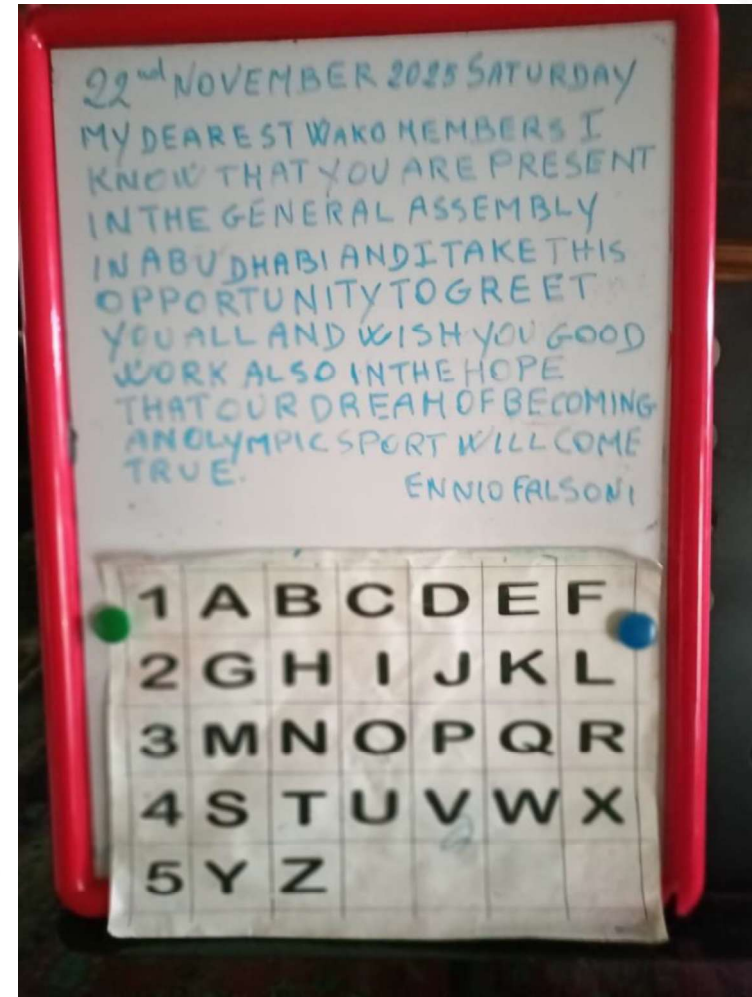 22nd NOVEMBER 2025 SATURDAY
MY DEAREST WAKO MEMBERS I
KNOW THAT YOU ARE PRESENT
IN THE GENERAL ASSEMBLY
IN ABU DHABI AND I TAKE THIS
OPPORTUNITY TO GREET
YOU ALL AND WISH YOU GOOD
WORK ALSO IN THE HOPE
THAT OUR DREAM OF BECOMING
AN OLYMPIC SPORT WILL COME
TRUE.
ENNIO FALSONI
1 A B C D E F
2 G H I J K L
3 M N O P Q R
4 S T U V W X
5 Y Z